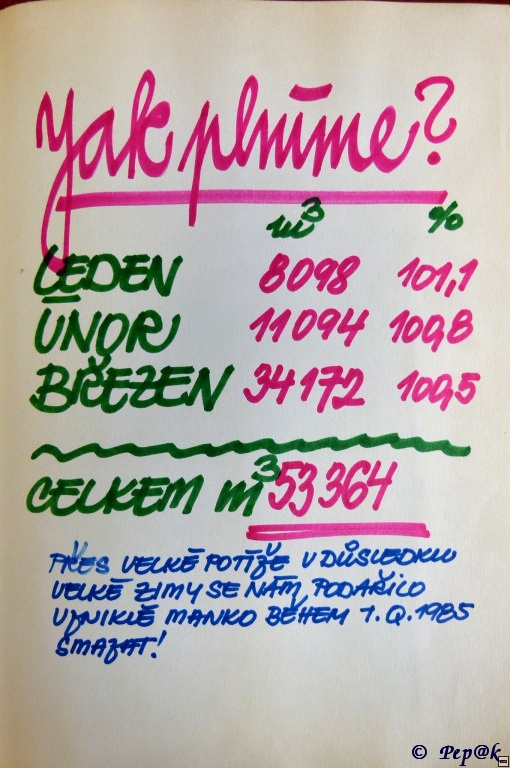 Jak plníme?
m³ %
LEDEN 8098 101,1
ÚNOR 11094 100,8
BŘEZEN 34172 100,5
CELKEM m³ 53364
PŘES VELKÉ POTÍŽE V DŮSLEDKU
VELKÉ ZIMY SE NÁM PODAŘILO
VZNIKLÉ MANKO BĚHEM 1.Q.1985
SMAZAT!
© Pep@k